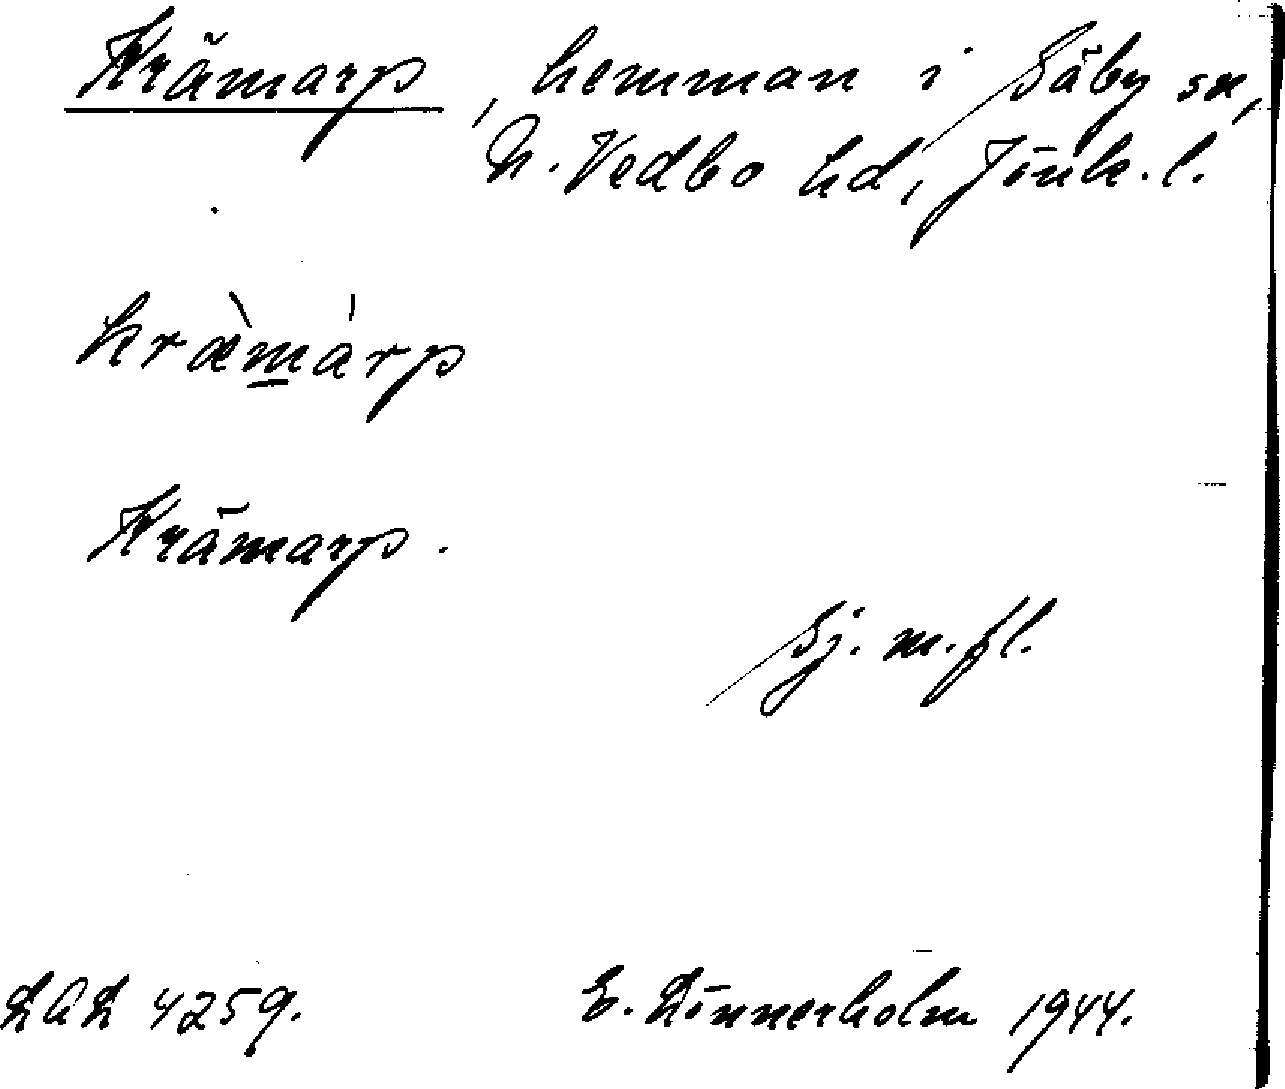 Krämarp, hemman i Säby sn,
N. Vedbo hd, Jönk. l.
kræ̀márp
Krämarp.
Sj. m. fl.
LAL 4259.
E. Lönnerholm 1944.